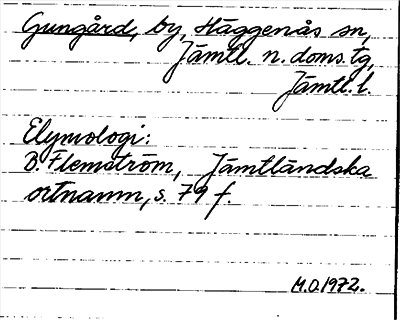 Gungård, by, Häggenås sn,
Jämtl. n. doms.tg,
Jämtl. l.
Etymologi:
B. Flemström, Jämtländska
ortnamn, s. 79 f.
M.O.1972.